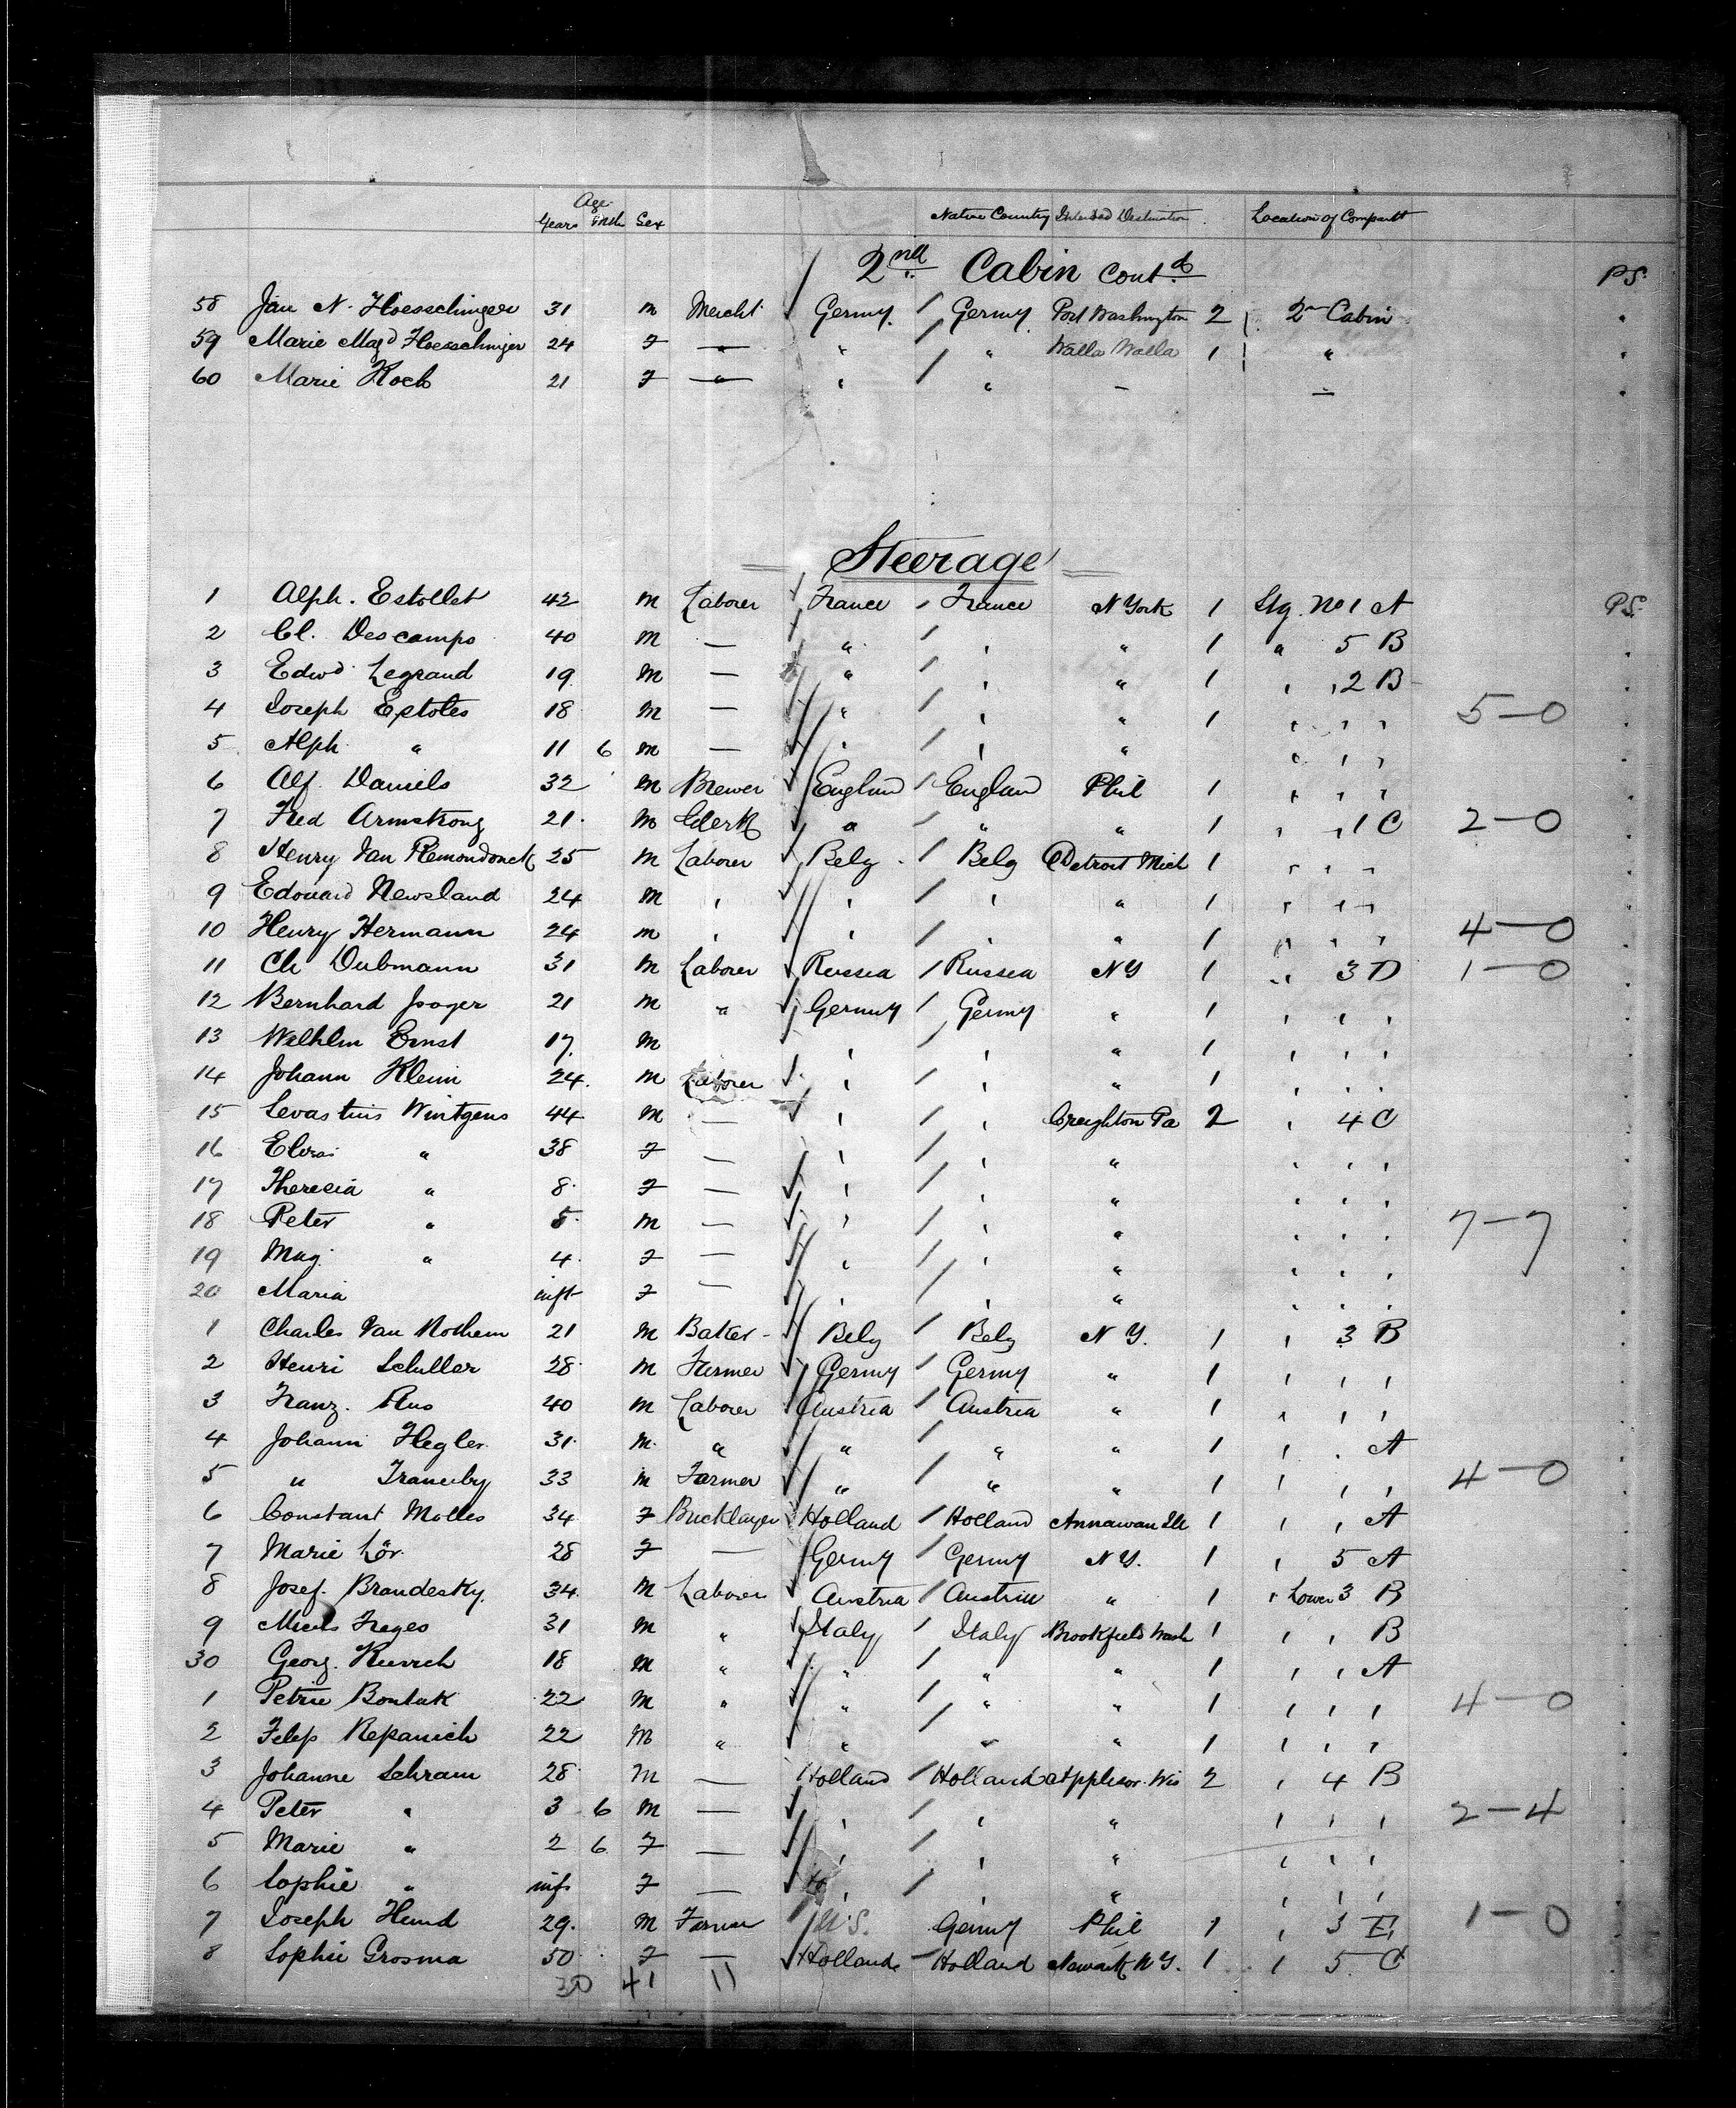 Age
Years Mths Sex Native Country Intended Destination Location of Compartt
2nd Cabin Contd P.S.
58 Jan N. Hoesschinger 31 m Mercht Germy. Germy. Port Washington 2 2n Cabin
59 Marie Magd Hoesschinger 24 F — " " Walla Walla 1 "
60 Marie Koch 21 F — " " — —
Steerage
1 Alph. Estollet 42 M Laborer France France N York 1 Stg. No 1 A P.S.
2 Cl. Descamps 40 M — " " " 1 " 5 B
3 Edwd Legrand 19 M — " " " 1 " " 2 B
4 Joseph Estoles 18 M — " " " 1 " " " 5—0
5 Alph " 11 6 M — " " " " " "
6 Alf Daniels 32 M Brewer England England Phil 1 " " "
7 Fred Armstrong 21 M Clerk " " " 1 " " 1 C 2—0
8 Henry Van Remondonck 25 M Laborer Belg. Belg Detroit Mich 1 " " "
9 Edouard Newsland 24 M " " " " 1 " " "
10 Henry Hermann 24 m " " " " 1 " " " 4—0
11 Ch Dubmann 31 M Laborer Russia Russia NY 1 " 3 D 1—0
12 Bernhard Joager 21 M " Germy Germy " 1 " " "
13 Wilhlm Ernst 17 M " " " 1 " " "
14 Johann Klein 24 M Laborer " " " 1 " " "
15 Sevastins Wintgens 44 M — " " Creighton Pa 2 " 4 C
16 " 38 F — " " " " " "
17 Theresia " 8 F — " " " " " "
18 Peter " 5 M — " " " " " " 7—7
19 Mag. " 4 F — " " " " " "
20 Maria inft F — " " " " " "
1 Charles Van Mothem 21 M Baker Belg Belg N Y. 1 " 3 B
2 Henri Schiller 28 M Farmer Germy Germy " 1 " " "
3 Franz. 40 M Laborer Austria Austria " 1 " " "
4 Johann Hegler 31 M " " " " 1 " . A
5 " 33 M Farmer " " " 1 " " " 4—0
6 Constant Molles 34 F Bricklayer Holland Holland Annawan Ill 1 " " A
7 Marie Lör. 28 F — Germy Germy N Y. 1 " 5 A
8 Josef. Brandesky 34 M Laborer Austria Austria " 1 " Lower 3 B
9 Freges 31 M " Italy Italy Brookfield Wash 1 " " B
30 Georg. 18 M " " " " 1 " " A
1 Petrie Bontak 22 M " " " " 1 " " " 4—0
2 Filep Repanich 22 M " " " " 1 " " "
3 Johanne Schram 28 M — Holland Holland Appleson. Wis 2 " 4 B
4 Peter " 3 6 M — " " " " " " 2—4
5 Marie " 2 6 F — " " " " " "
6 Sophie " inf F — " " " " " "
7 Joseph Hund 29. M Farmer U.S. Germy Phil 1 " 3 E 1—0
8 Sophie Grosma 50 F — Holland Holland Newark N Y. 1 " 5 C
30 41 11